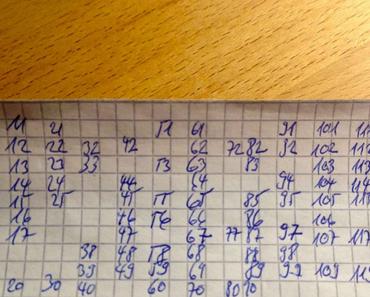 11 21 51 61 91 101
12 22 32 42 62 72 82 92 102 112
13 23 33 53 63 83 103 113
14 24 44 64 94 104 114
15 25 45 55 65 85 95 105 115
16 46 56 66 86 106
17 47 67 77 87 97 107 117
38 48 58 68 88 98
39 49 59 69 89 99 109
20 30 40 60 70 80